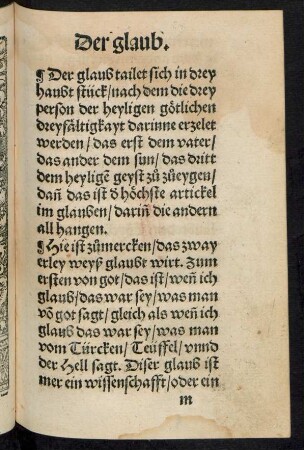 Der glaub.
¶Der glaub tailet sich in drey
haubt stuck/nach dem die drey
person der heyligen götlichen
dreyfåltigkayt darinne erzelet
werden/das erst dem vater/
das ander dem sun/das dritt
dem heyligē geyst zů zůeygen/
dañ das ist ð höchste artickel
im glauben/dariñ die andern
all hangen.
¶Hie ist zůmercken/das zway
erley weyß glaubt wirt. Zum
ersten von got/das ist/weñ ich
glaub/das war sey/was man
võ got sagt/gleich als weñ ich
glaub das war sey/was man
vom Türcken/Teüffel/vnnd
der Hell sagt. Diser glaub ist
mer ein wissenschafft/oder ein
m